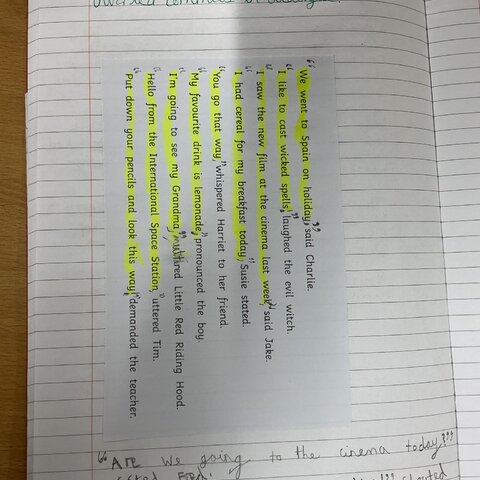 inverted commas
"We went to Spain on holiday," said Charlie.
"I like to cast wicked spells," laughed the evil witch.
"I saw the new film at the cinema last week," said Jake.
"I had cereal for my breakfast today," Susie stated.
"You go that way," whispered Harriet to her friend.
"My favourite drink is lemonade," pronounced the boy.
"I'm going to see my Grandma," muttered Little Red Riding Hood.
"Hello from the International Space Station," uttered Tim.
"Put down your pencils and look this way!" demanded the teacher.
"Are we going to the cinema today?"